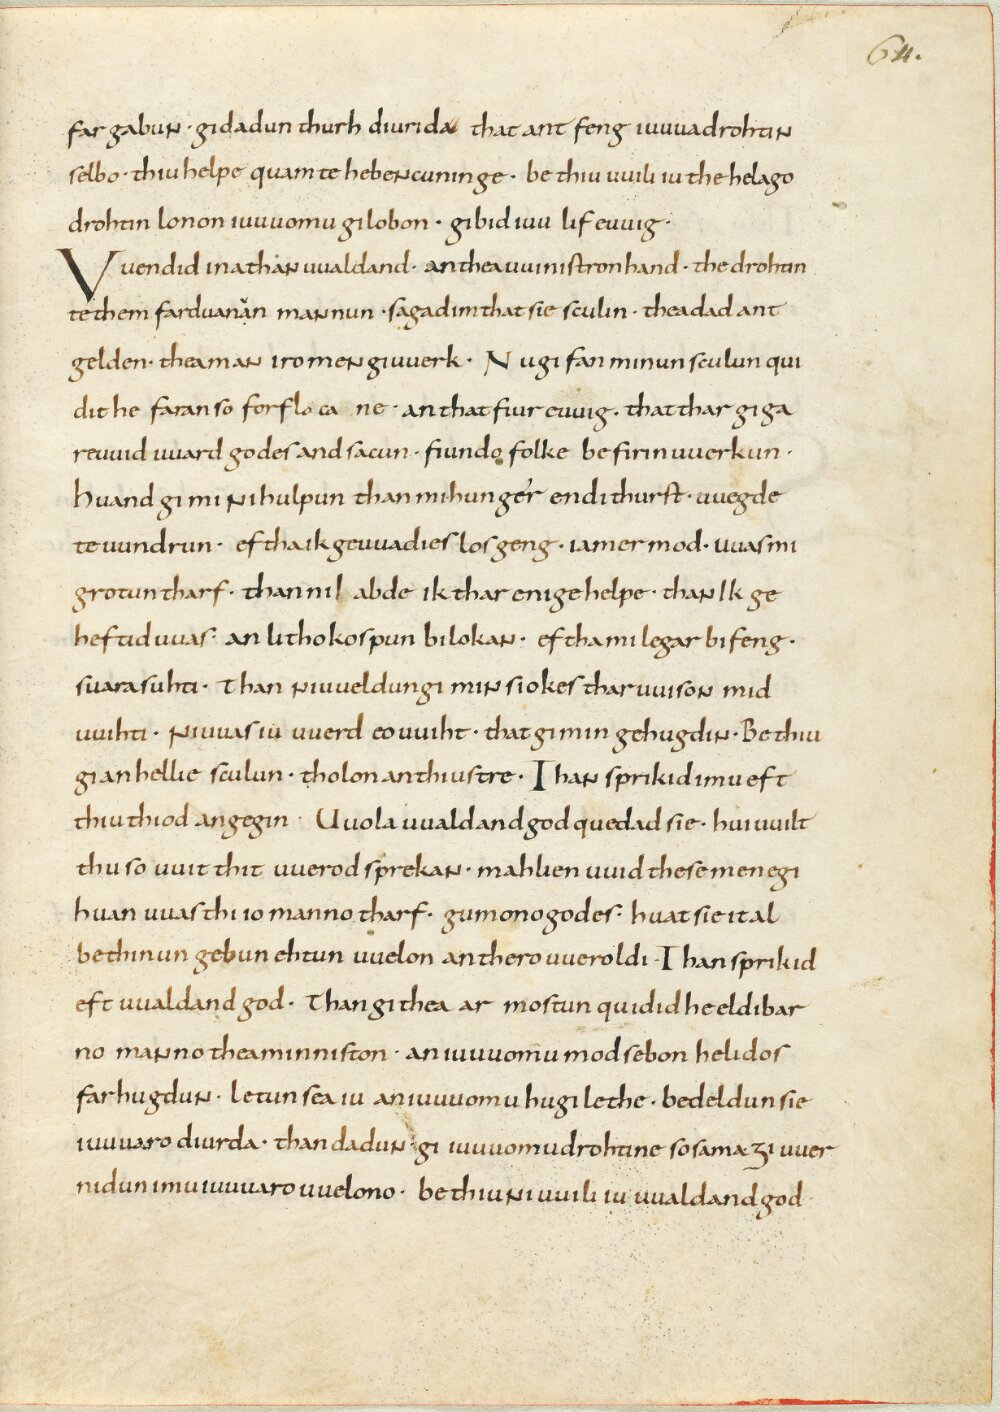 64.
fargabun · gidadun thurh diurida that ant feng iuuua drohtin
selbo · thiu helpe quam te hebencuninge · be thiu uuili iu the helago
drohtin lonon iuuuomu gilobon · gibid iuu lif euuig ·
Vuendid ina than uualdand · an thea uuinistron hand · the drohtin
te them farduanan mannun · sagad im that sie sculin · thea dad ant
gelden · thea man iro mengiuuerk · Nu gi fan mi nu sculun qui
dit he faran so forflocane · an that fiur euuig · that thar giga
reuuid uuard godes andsacun · fiundo folke be firinuuerkun ·
huand gi mi ni hulpun than mi hunger endi thurst · uuegde
te uundrun · eftha ik geuuadies los geng · iamermod · uuas mi
grotun tharf · than ni habde ik thar enige helpe · than Ik ge
heftid uuas · an lithokospun bilokan · eftha mi legar bifeng ·
suara suhti · Than ni uueldun gi min siokes thar uuison mid
uuihti · ni uuas iu uuerd eouuiht · that gi min gehugdin · Be thiu
gi an hellie sculun · tholon an thiustre · Than sprikid imu eft
thiu thiod angegin · Uuola uualdand god quedad sie · hui uuilt
thu so uuit thit uuerod sprekan · mahlien uuid these menegi
huan uuas thi io manno tharf · gumono godes · huat sie it al
be thinun gebun ehtun uuelon an thero uueroldi · Than sprikid
eft uualdand god · Than gi thea ar mostun quidid he eldibar
no manno thea minniston · an iuuuomu modsebon helidos
farhugdun · letun sea iu an iuuuomu hugi lethe · bedeldun sie
iuuuaro diurda · than dadun gi iuuuomu drohtine so sama · gi uuer
nidun imu iuuuaro uuelono · be thiu ni uuili iu uualdand god